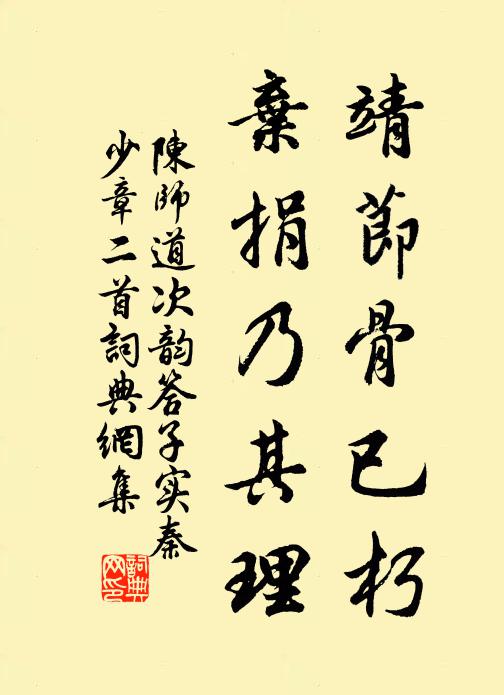 靖節骨已朽
棄捐乃其理
陳師道次韵答子实秦
少章二首詞典網集
詞典网印